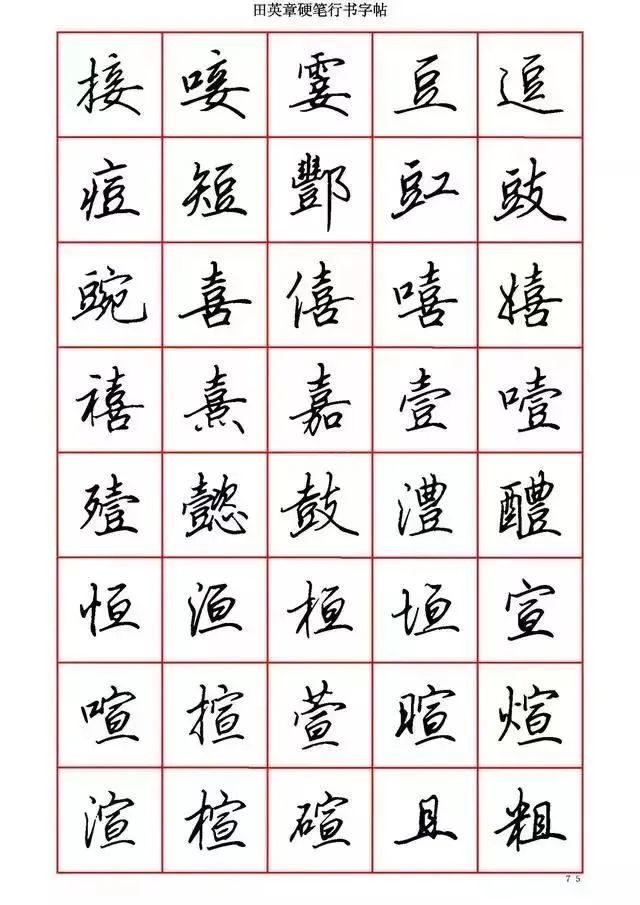 田英章硬笔行书字帖
接唼霎豆逗
痘短酆豇豉
豌喜僖嘻嬉
禧熹嘉壹噎
殪懿鼓澧醴
恒洹桓垣宣
喧揎萱暄煊
渲楦碹且粗
75